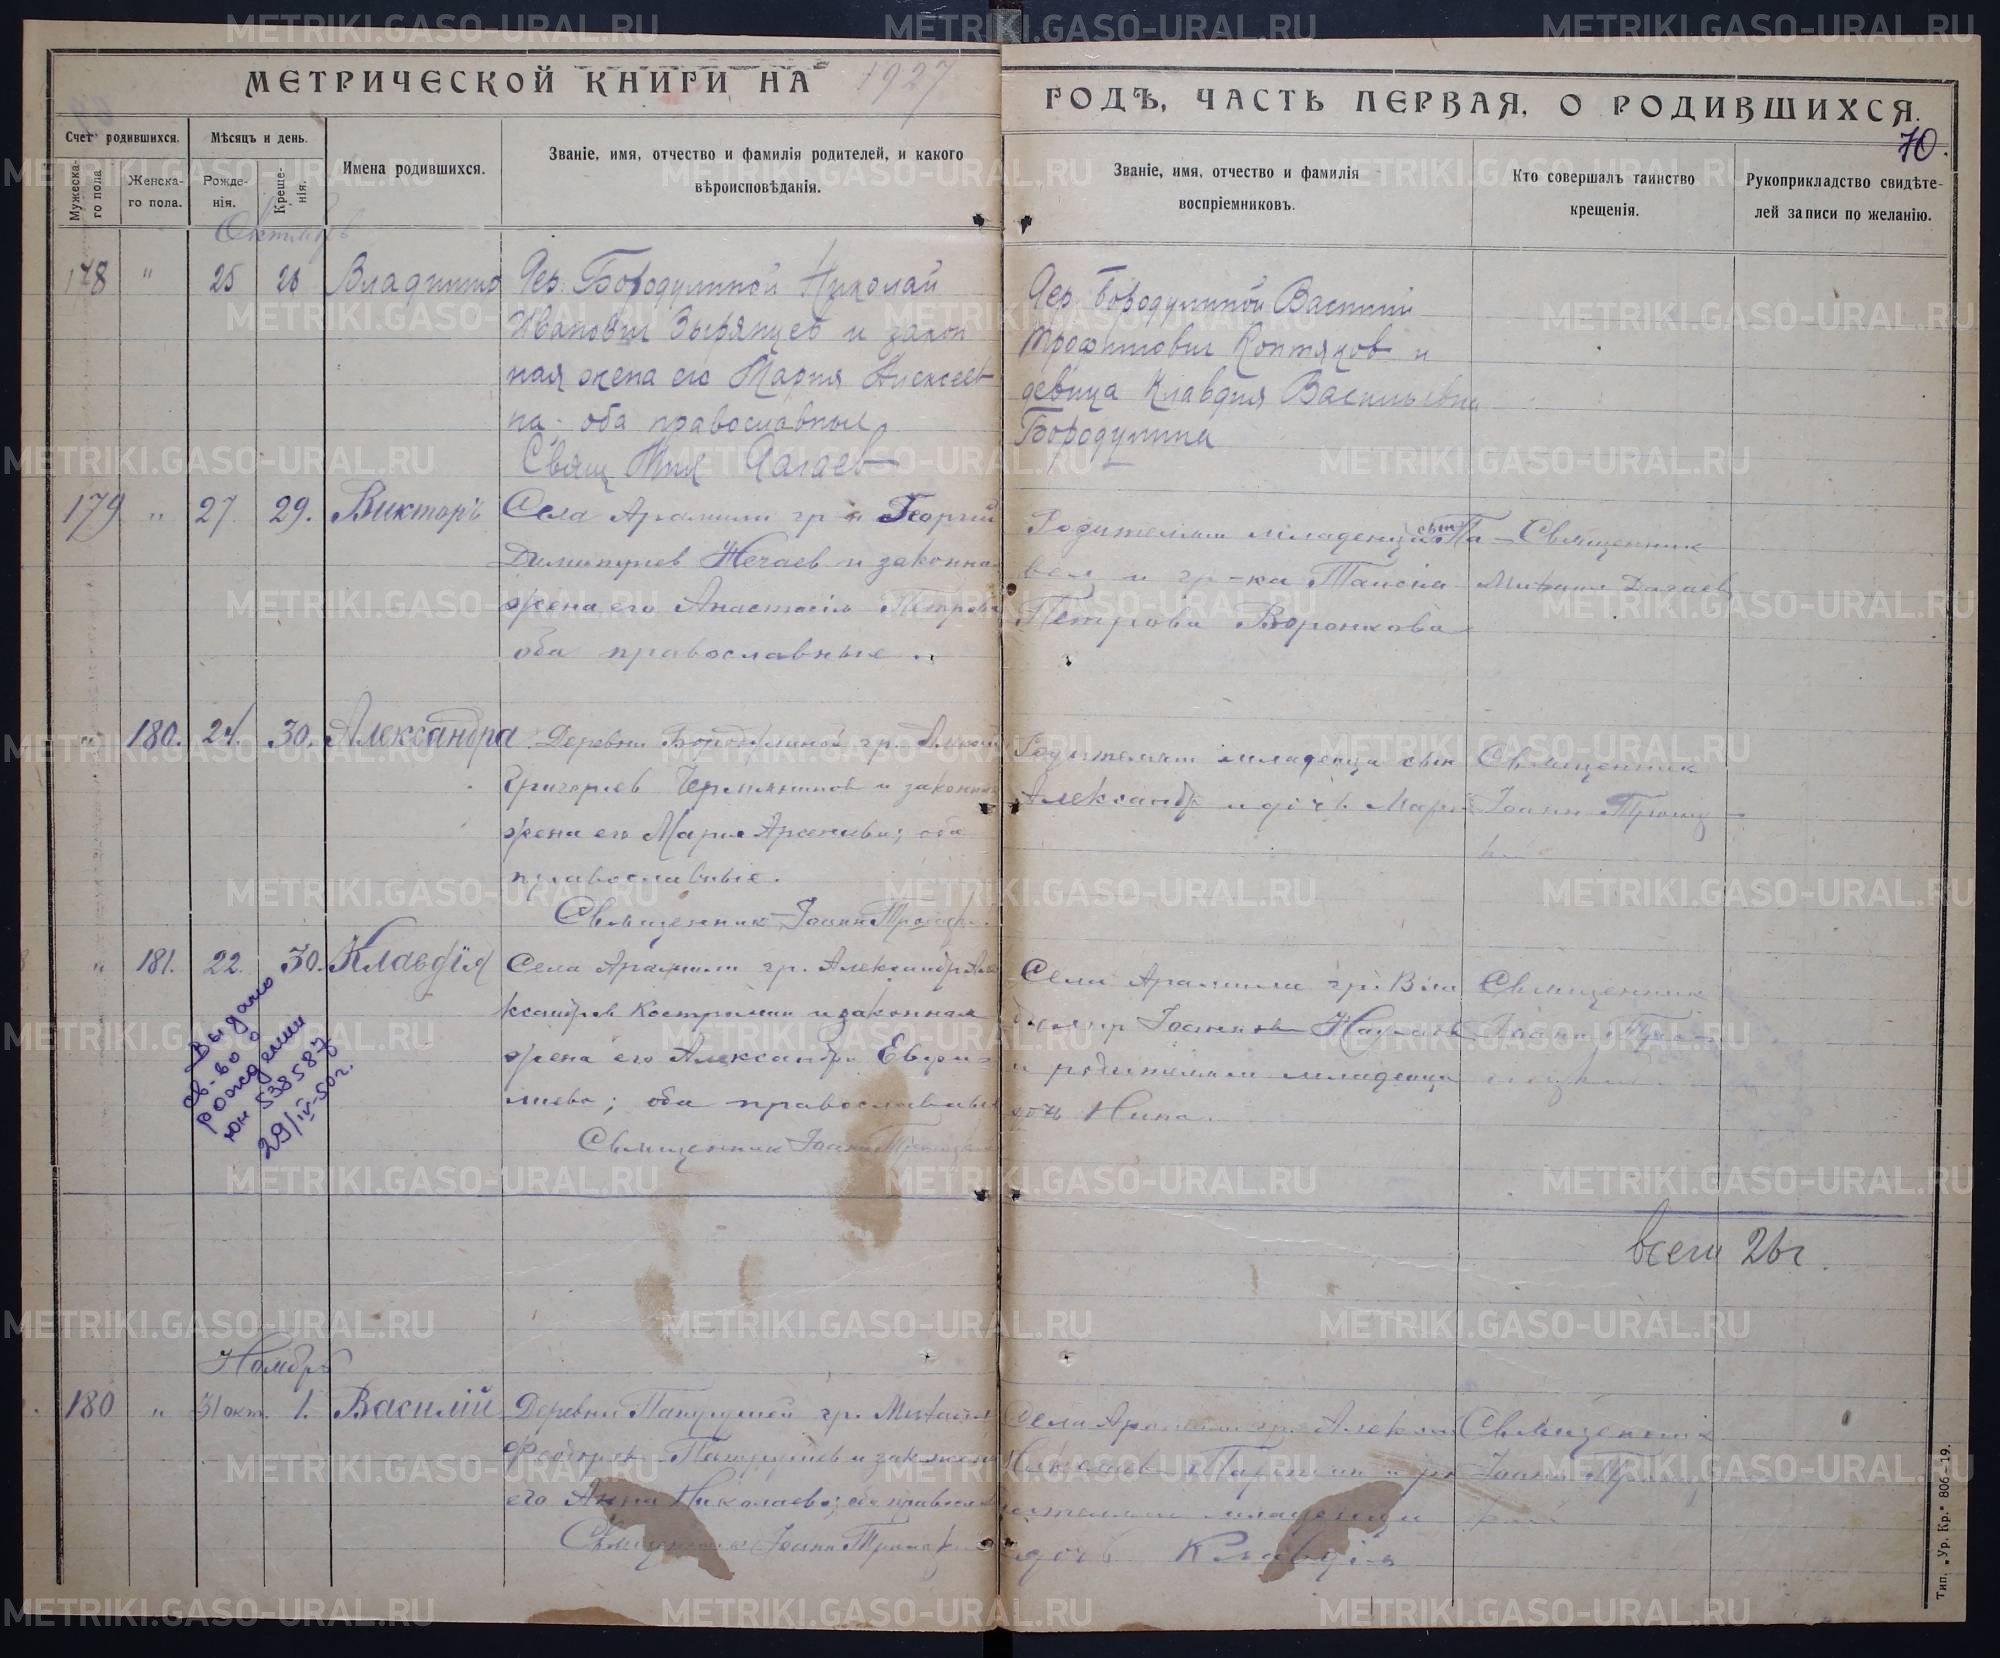 МЕТРИЧЕСКОЙ КНИГИ НА 1927
ГОДЪ, ЧАСТЬ ПЕРВАЯ, О РОДИВШИХСЯ.
70.
Счет родившихся.
Мужеска-го пола.
Женска-го пола.
Мѣсяцъ и день.
Рожде-нія.
Креще-нія.
Имена родившихся.
Званіе, имя, отчество и фамилія родителей, и какого
вѣроисповѣданія.
Званіе, имя, отчество и фамилія
воспріемниковъ.
Кто совершалъ таинство
крещенія.
Рукоприкладство свидѣте-
лей записи по желанію.
Октябрь
178 " 25 26 Владимир
Дер. Бородулиной Николай
Иванович Зырянцев и закон
ная жена его Мария Алексеев
на. оба православные
Свящ Мих Дагаев
Дер. Бородулиной Василий
Трофимович Коптяков и
девица Клавдия Васильевна
Бородулина
179 " 27 29. Викторъ
Села Арамили гр-н Георгий
Димитриев Нечаев и законна
жена его Анастасія Петрова
оба православные.
Родителями младенца сын Па-
вел и гр-ка Таисія
Петрова Воронкова
Священник
Михаил Дагаев
" 180. 24. 30. Александра
Деревни Бородулиной гр.
Григорьев и законна
жена его Мария Арсеньева; оба
православные.
Священник Іоанн
Родителями младенца сын
Александр и дочь Мария
Священник
Іоанн
" 181. 22. 30. Клавдія
Села Арамили гр. Александр Але
ксандров Костромин и законная
жена его Александра Евфи-
миева; оба православные
Священник Іоанн
Села Арамили гр. Вла
димир Іоаннов
и родителями младенца
дочь Нина.
Священник
Іоанн
Выдано
св-во о
рождении
юн 538587
29/IV-50г.
всего 26г.
Ноябрь
180 " 31 окт. 1. Василій
Деревни Патрушей гр. Михаил
Феодоров Патрушев и зак. жена
его Анна Николаева; оба правосл
Священник Іоанн
Села Арамили гр. Алексей
младенца
дочь Клавдія
Священник
Іоанн
Тип. „Ур. Кр.“ 806—19.
METRIKI.GASO-URAL.RU